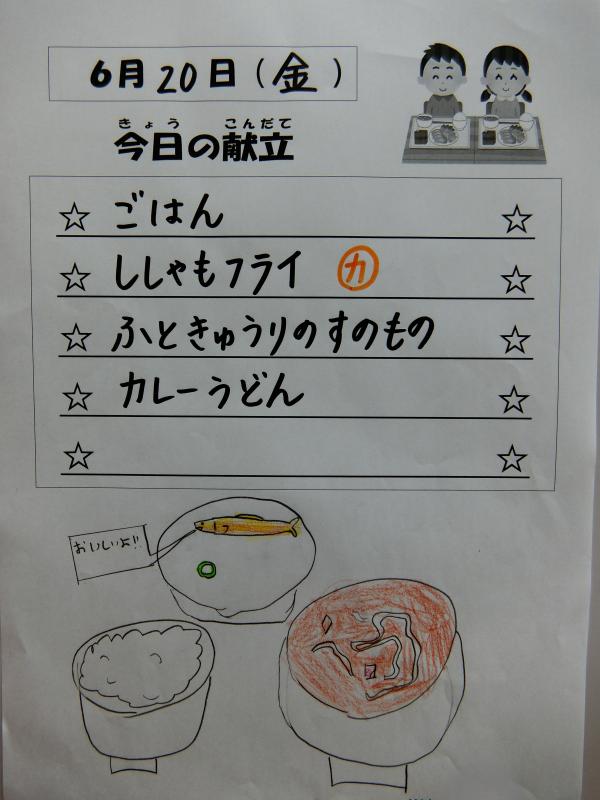 6月20日(金)
きょう こんだて
今日の献立
☆ ごはん ☆
☆ ししゃもフライ カ ☆
☆ ふときゅうりのすのもの ☆
☆ カレーうどん ☆
☆ ☆
おいしいよ!!